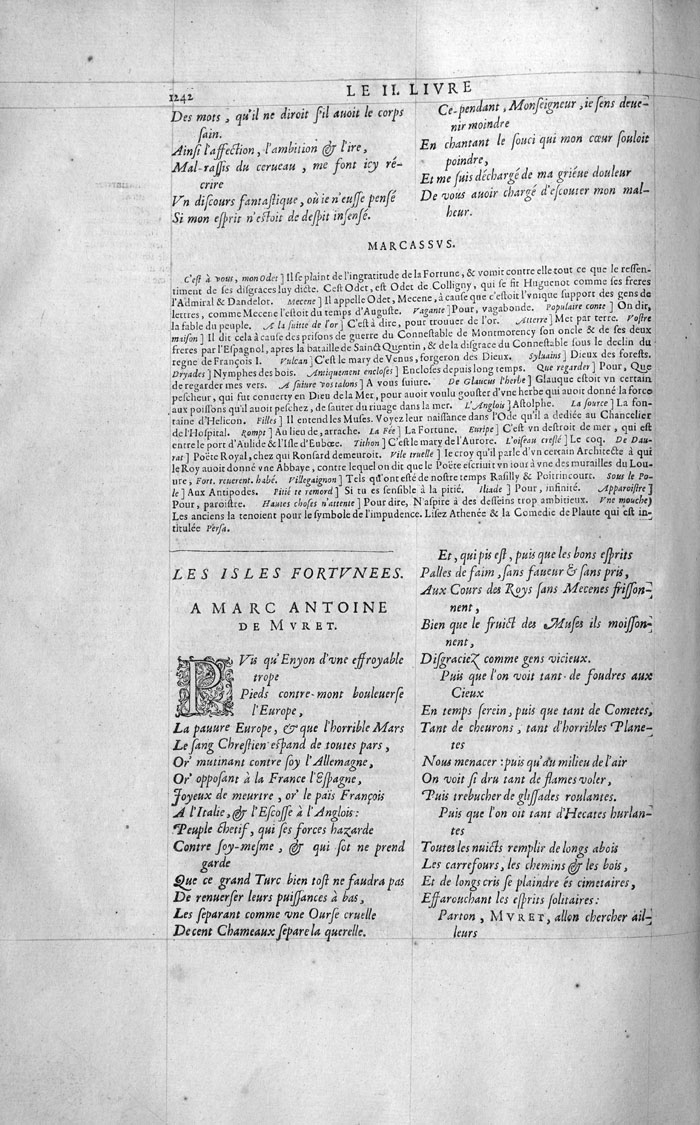 1242
LE II. LIVRE
Des mots, qu'il ne diroit s'il auoit le corps
sain.
Ainsi l'affection, l'ambition & l'ire,
Mal-rassis du cerueau, me font icy ré-
crire
Vn discours fantastique, où ie n'eusse pensé
Si mon esprit n'estoit de despit insensé.
Ce-pendant, Monseigneur, ie sens deue-
nir moindre
En chantant le souci qui mon cœur souloit
poindre,
Et me suis déchargé de ma griéue douleur
De vous auoir chargé d'escouter mon mal-
heur.
MARCASSVS.
C'est à vous, mon Odet] Il se plaint de l'ingratitude de la Fortune, & vomit contre elle tout ce que le ressen-
timent de ses disgraces luy dicte. C'est Odet, est Odet de Colligny, qui se fit Huguenot comme ses freres
l'Admiral & Dandelot. Mecene] Il appelle Odet, Mecene, à cause que c'estoit l'vnique support des gens de
lettres, comme Mecene l'estoit du temps d'Auguste. Vagante] Pour, vagabonde. Populaire conte] On dit,
la fable du peuple. A la suitte de l'or] C'est à dire, pour trouuer de l'or. Atterre] Met par terre. Vostre
maison] Il dit cela à cause des prisons de guerre du Connestable de Montmorency son oncle & de ses deux
freres par l'Espagnol, apres la bataille de Sainct Quentin, & de la disgrace du Connestable sous le declin du
regne de François I. Vulcan] C'est le mary de Venus, forgeron des Dieux. Syluains] Dieux des forests.
Dryades] Nymphes des bois. Antiquement encloses] Encloses depuis long temps. Que regarder] Pour, Que
de regarder mes vers. A suiure vos talons] A vous suiure. De Glaucus l'herbe] Glauque estoit vn certain
pescheur, qui fut conuerty en Dieu de la Mer, pour auoir voulu gouster d'vne herbe qui auoit donné la force
aux poissons qu'il auoit peschez, de sauter du riuage dans la mer. L'Anglois] Astolphe. La source] La fon-
taine d'Helicon. Filles] Il entend les Muses. Voyez leur naissance dans l'Ode qu'il a dediée au Chancelier
de l'Hospital. Rompt] Au lieu de, arrache. La Fée] La Fortune. Euripe] C'est vn destroit de mer, qui est
entre le port d'Aulide & l'Isle d'Eubœe. Tithon] C'est le mary de l'Aurore. L'oiseau cresté] Le coq. De Dau-
rat] Poëte Royal, chez qui Ronsard demeuroit. Vile truelle] Ie croy qu'il parle d'vn certain Architecte à qui
le Roy auoit donné vne Abbaye, contre lequel on dit que le Poëte escriuit vn iour à vne des murailles du Lou-
ure, Fort. reuerent. habé. Villegaignon] Tels qu'ont esté de nostre temps Rasilly & Poitrincourt. Sous le Po-
le] Aux Antipodes. Pitié te remord] Si tu es sensible à la pitié. Iliade] Pour, infinité. Apparoistre]
Pour, paroistre. Hautes choses n'attente] Pour dire, N'aspire à des desseins trop ambitieux. Vne mouche]
Les anciens la tenoient pour le symbole de l'impudence. Lisez Athenée & la Comedie de Plaute qui est in-
titulée Persa.
LES ISLES FORTVNEES.
A MARC ANTOINE
DE MVRET.
PVis qu'Enyon d'vne effroyable
trope
Pieds contre-mont bouleuerse
l'Europe,
La pauure Europe, & que l'horrible Mars
Le sang Chrestien espand de toutes pars,
Or' mutinant contre soy l'Allemagne,
Or' opposant à la France l'Espagne,
Joyeux de meurtre, or' le païs François
A l'Italie, & l'Escosse à l'Anglois:
Peuple chetif, qui ses forces hazarde
Contre soy-mesme, & qui sot ne prend
garde
Que ce grand Turc bien tost ne faudra pas
De renuerser leurs puissances à bas,
Les separant comme vne Ourse cruelle
De cent Chameaux separe la querelle.
Et, qui pis est, puis que les bons esprits
Palles de faim, sans faueur & sans pris,
Aux Cours des Roys sans Mecenes frisson-
nent,
Bien que le fruict des Muses ils moisson-
nent,
Disgraciez comme gens vicieux.
Puis que l'on voit tant de foudres aux
Cieux
En temps serein, puis que tant de Cometes,
Tant de cheurons, tant d'horribles Plane-
tes
Nous menacer: puis qu'au milieu de l'air
On voit si dru tant de flames voler,
Puis trebucher de glissades roulantes.
Puis que l'on oit tant d'Hecates hurlan-
tes
Toutes les nuicts remplir de longs abois
Les carrefours, les chemins & les bois,
Et de longs cris se plaindre és cimetaires,
Effarouchant les esprits solitaires:
Parton, MVRET, allon chercher ail-
leurs